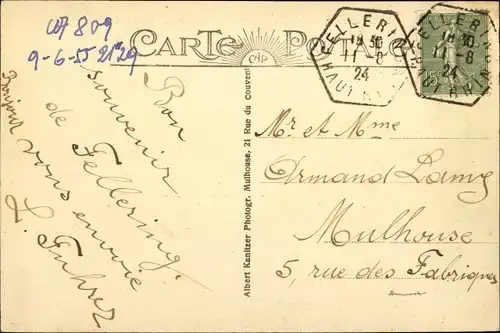 809
9-6-55 2129
CARTE POSTALE
CAP
FELLERING
18 30
11-8
24
HAUT RHIN
FELLERING
18 30
11-8
24
HAUT RHIN
Bon
souvenir
de Fellering.
Bonjour vous envoie
L. Fuhrer
Albert Kanitzer Photogr. Mulhouse, 21 Rue du Couvent
Mr et Mme
Armand Lamy
Mulhouse
5, rue des Fabriques